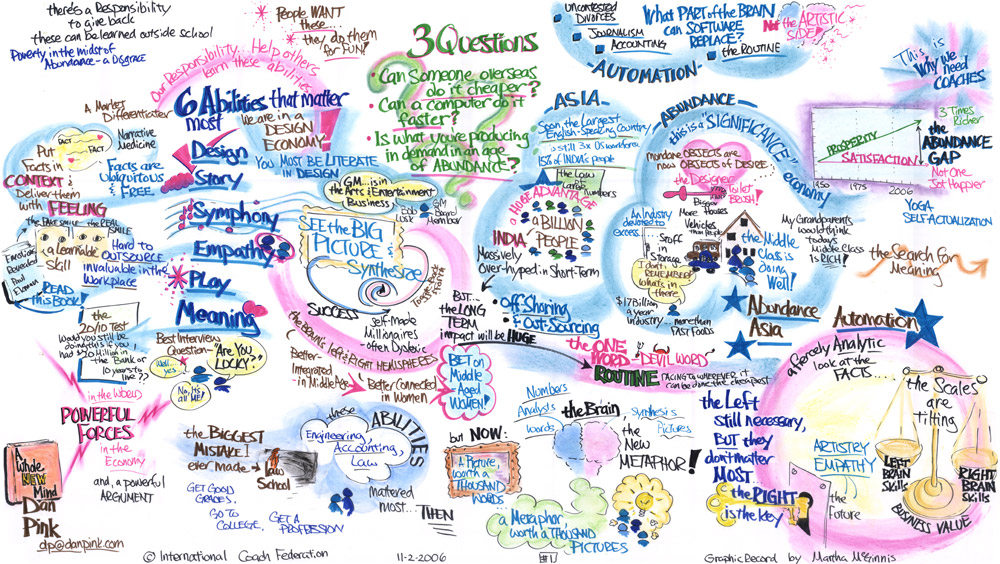 there's a Responsibility
to give back
these can be learned outside school
Poverty in the midst of
Abundance - a DISGRACE
People WANT
these
they do them
for FUN!
Our Responsibility Help others
learn these abilities
6 Abilities that matter
most
We are in a
DESIGN
ECONOMY!
YOU MUST BE LITERATE
IN DESIGN
Design
Story
Symphony
Empathy
Play
Meaning
A Market
Differentiator
FACT
FACT
Narrative
Medicine
Put
Facts in
CONTEXT &
Deliver them
with FEELING
Facts are
UBIQUITOUS
& FREE
the FAKE SMILE
the REAL
SMILE
a learnable
Skill
Emotions
Revealed
Paul
Ekman
READ
this BOOK!
Hard to
OUTSOURCE
invaluable in the
Workplace
the
20/10 TEST
Would you still be
doing this if you
had $20 Million in
the BANK or
10 years to
live??
Best Interview
Question
Are You
LUCKY??
Well,
yes
No, Not
all Me!
GM... is in
the Arts & Entertainment
Business
Bob
Lutz
GM
Board
Member
SEE the BIG
PICTURE &
Synthesize
Toggle Back
& Forth
SUCCESS
Self-Made
Millionaires
-often Dyslexic
the BRAIN'S left & RIGHT HEMISPHERES
Better-
Integrated
in Middle Age
Better Connected
in Women
BET on
Middle
-Aged
WOMEN!
3 Questions
• Can Someone overseas
do it cheaper?
• Can a computer do it
faster?
• Is what you're producing
in demand in an age
of ABUNDANCE?
uncontested
DIVORCES
JOURNALISM
ACCOUNTING
What PART of the BRAIN
can SOFTWARE
REPLACE?
the ROUTINE
Not the ARTISTIC
SIDE!
-AUTOMATION-
This is
WHY we need
COACHES
ASIA
Soon the Largest
English-Speaking Country
15% of INDIA's people
is still 3X US workforce
the Law
of Large
Numbers
a HUGE ADVANTAGE
a BILLION
PEOPLE
INDIA
Massively
Over-hyped in Short-Term
BUT...
the LONG
TERM
impact will be HUGE
Off-Shoring
& Out-Sourcing
ABUNDANCE
this is a "SIGNIFICANCE" economy
mundane OBJECTS are
now OBJECTS of DESIRE
the Designer
Toilet
BRUSH!
An Industry
devoted to
excess...
Bigger
More Houses
Vehicles
than People
Stuff
Storage
I don't
REMEMBER
what's in
there
$17 Billion
a year
industry... more than
FAST FOODS
the Middle
Class is
doing
Well!
My Grandparents
would think
todays
Middle Class
is RICH!
PROSPERITY
SATISFACTION
1950
1975
2006
3 Times
Richer
the
ABUNDANCE
GAP
Not One
Jot Happier
YOGA
SELF-ACTUALIZATION
the Search for
Meaning
Abundance
Asia
Automation
the ONE
WORD - "DEVIL WORD"
ROUTINE
TALKING TO WHEREVER IT
can be done the cheapest
in the WORLD
POWERFUL
FORCES
in the
Economy
and, a powerful
ARGUMENT
A
Whole
NEW
Mind
Dan
Pink
dp@danpink.com
the BIGGEST
MISTAKE I
ever made
law
School
GET GOOD
GRADES,
GO TO
COLLEGE,
GET A
PROFESSION
these
ABILITIES
Engineering,
Accounting,
Law
mattered
most...
THEN
but NOW:
A Picture,
worth a
THOUSAND
WORDS
Numbers
Analysts
words
the Brain
synthesis
Pictures
the
New
METAPHOR!
a Metaphor
worth a THOUSAND
PICTURES
Fiercely Analytic
look at the
FACTS
the Left
Still necessary,
BUT they
don't matter
MOST...
the RIGHT
is the key
ARTISTRY
EMPATHY
the
Future
the Scales
are
TILTING
LEFT
BRAIN
Skills
RIGHT
BRAIN
Skills
BUSINESS VALUE
© International Coach Federation
11-2-2006
#1
Graphic Record by Martha McGinnis